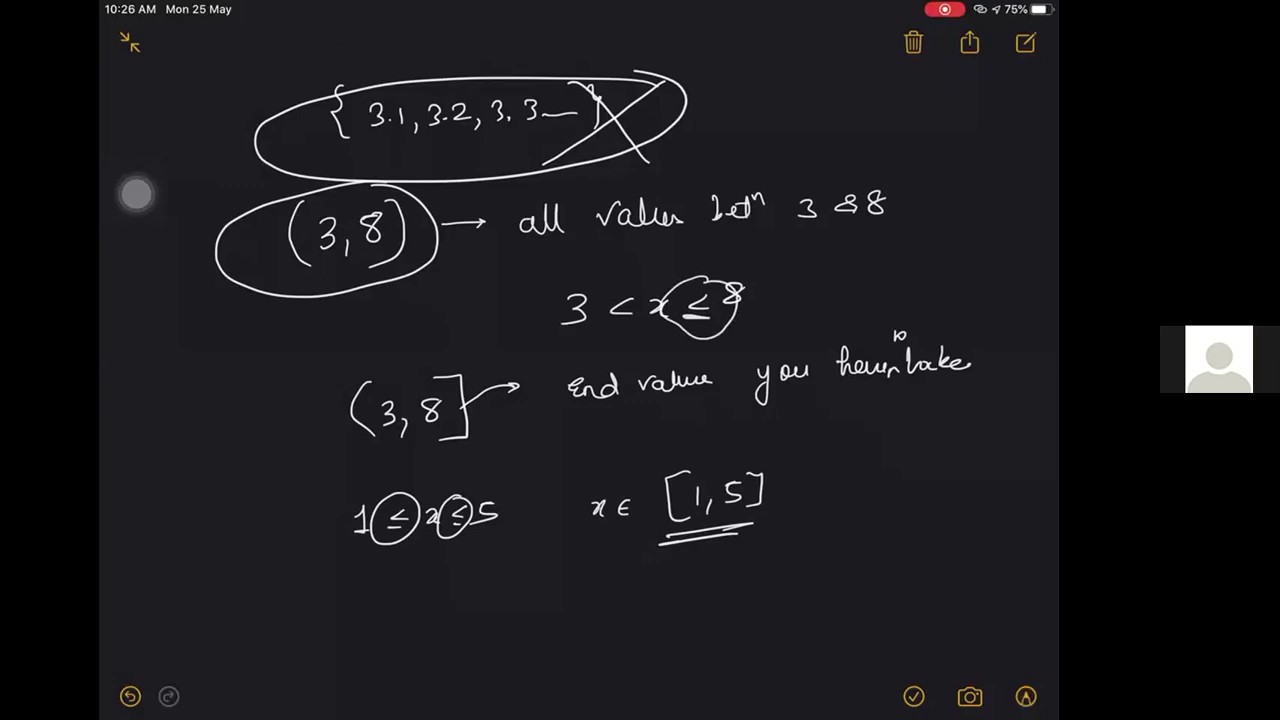 10:26 AM Mon 25 May
75%
{ 3.1, 3.2, 3.3— }
(3, 8) → all values betⁿ 3 & 8
3 < x ≤ 8
(3, 8] → End value you have to take
1 ≤ x ≤ 5 x ∈ [1, 5]